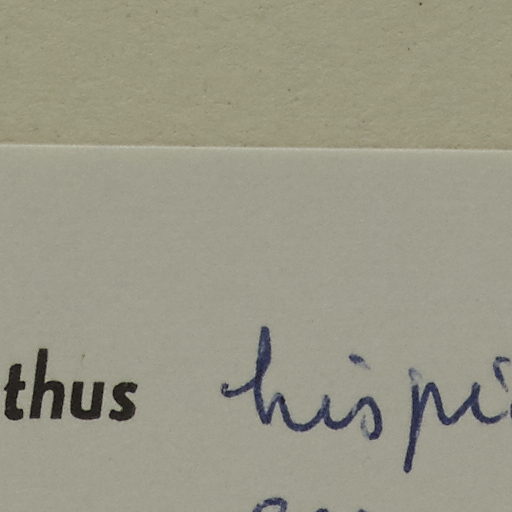 thus hispi